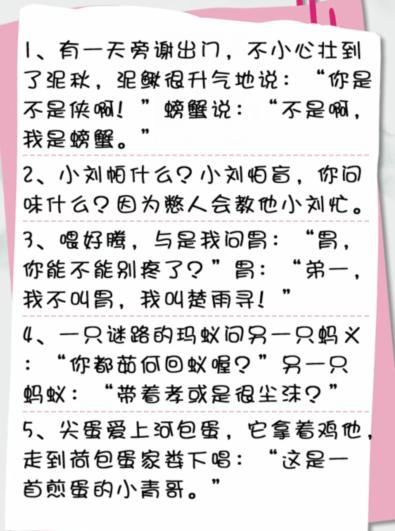 1、有一天旁谢出门，不小心壮到
了泥秋，泥鳅很升气地说：“你是
不是侠啊！”螃蟹说：“不是啊，
我是螃蟹。”
2、小刘帕什么？小刘怕盲，你问
味什么？因为憋人会教他小刘忙。
3、喂好腾，与是我问胃：“胃，
你能不能别疼了？”胃：“弟一，
我不叫胃，我叫楚雨寻！”
4、一只谜路的玛蚁问另一只蚂义
：“你都茹何回蚁喔？”另一只
蚂蚁：“带着孝或是很尘沫？”
5、尖蛋爱上河包蛋，它拿着鸡他，
走到荷包蛋家娄下唱：“这是一
首煎蛋的小青哥。”